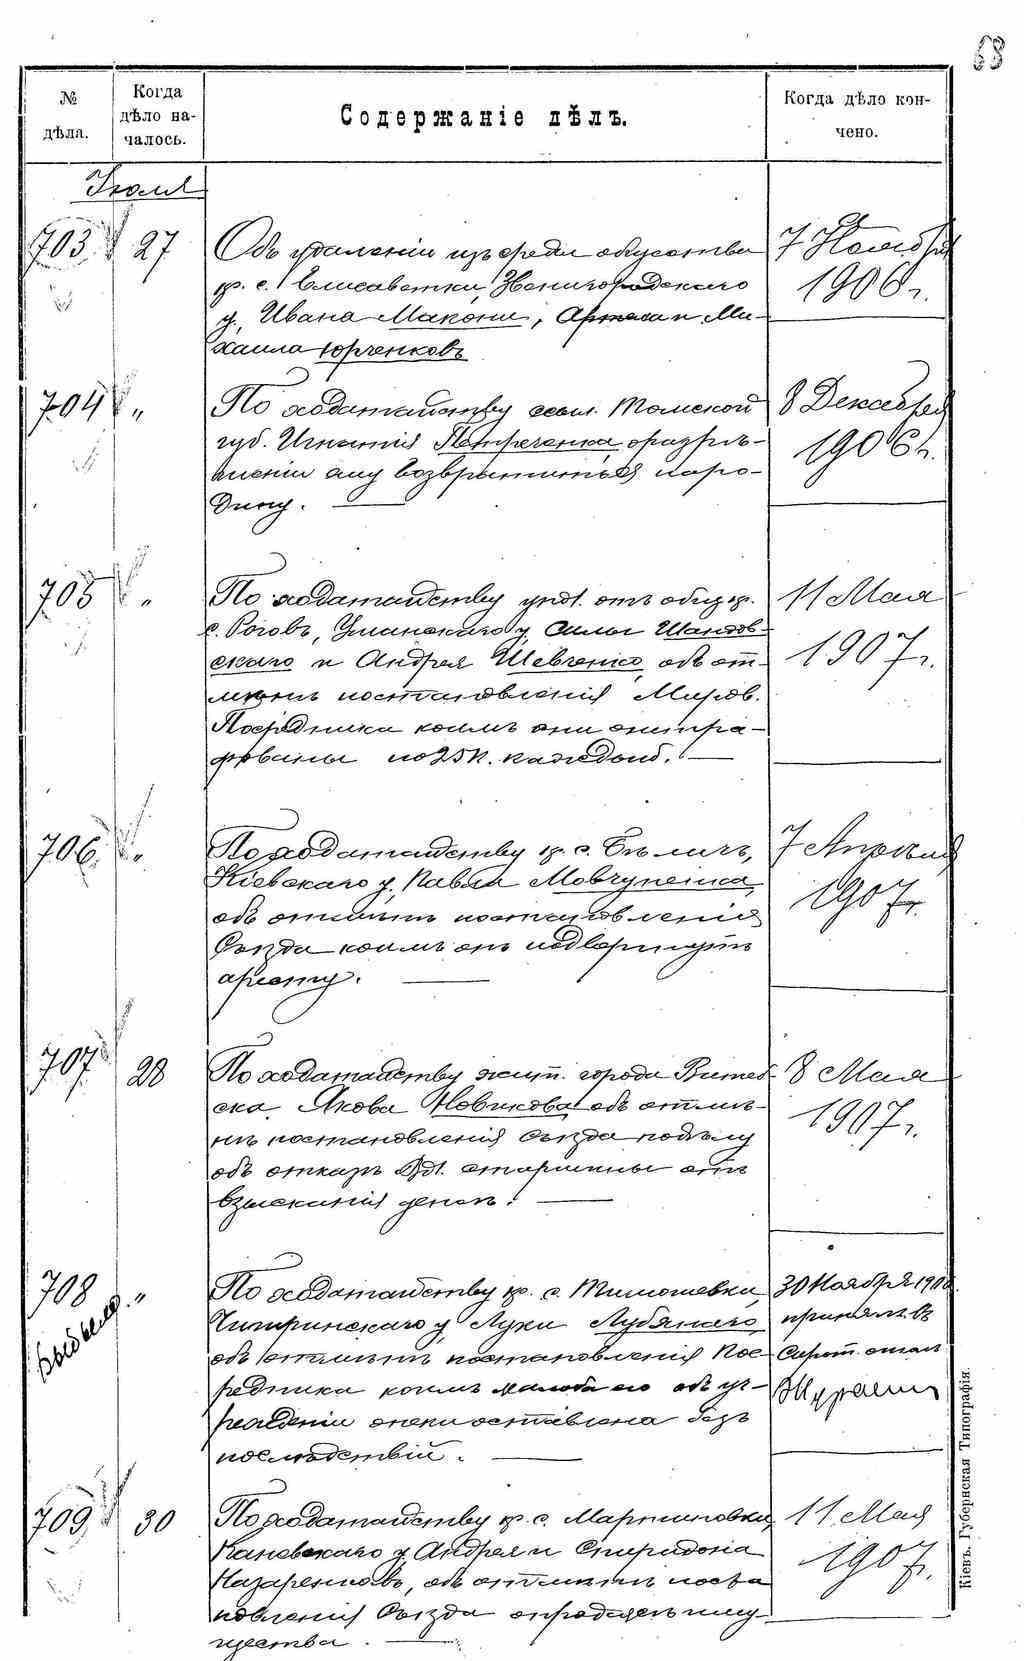 68
№ дѣла.
Когда дѣло началось.
Содержаніе дѣлъ.
Когда дѣло кончено.
Іюля
703 27 Объ удаленіи изъ среды общества 7 Ноября
кр. с. Елисаветки, Звенигородскаго 1906 г.
у. Ивана Макони, Артема и Ми-
хаила Юрченковъ
704 „ По ходатайству ссыл. Томской 8 Декабря
губ. Игнатія Петреченка о разрѣ- 1906 г.
шеніи ему возвратиться на ро-
дину.
705 „ По ходатайству упол. отъ общ. кр. 11 Мая
с. Роговъ, Уманскаго у. Силы Шантов- 1907 г.
скаго и Андрея Шевченко, объ от-
мѣнѣ постановленія Миров.
Посредника коимъ они оштра-
фованы по 25 к. каждый.
706 „ По ходатайству кр. с. Бѣличъ, 7 Апрѣля
Кіевскаго у. Павла Мовчуненка, 1907 г.
объ отмѣнѣ постановленія
Съѣзда коимъ онъ подвергнутъ
аресту.
707 28 По ходатайству жит. города Витеб- 8 Мая
ска Якова Новикова объ отмѣ- 1907 г.
нѣ постановленія Съѣзда по дѣлу
объ отказѣ Вол. старшины отъ
взысканія денегъ.
708 „ По ходатайству кр. с. Тимошевки, 30 Ноября 1906
выбыло. Чигиринскаго у. Луки Лубянаго, принялъ въ
объ отмѣнѣ постановленія Пос- Сирот. столъ
редника коимъ жалоба его объ уч-
режденіи опеки оставлена безъ
послѣдствій.
709 30 По ходатайству кр. с. Мартыновки, 11 Мая
Каневскаго у. Андрея и Спиридона 1907 г.
Назаренковъ, объ отмѣнѣ поста
новленія Съѣзда о продажѣ иму-
щества.
Кіевъ. Губернская Типографія.